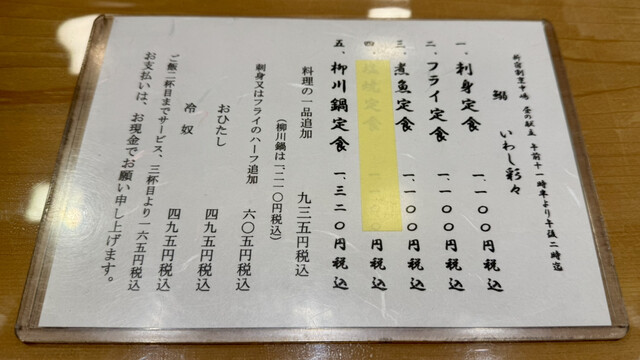 新宿割烹中嶋 昼の献立 午前十一時半より午後二時迄
鰯 いわし彩々
一、刺身定食 一、一〇〇円税込
二、フライ定食 一、一〇〇円税込
三、煮魚定食 一、一〇〇円税込
四、 定食 円税込
五、柳川鍋定食 一、三二〇円税込
料理の一品追加 九三五円税込
(柳川鍋は一、二一〇円税込)
刺身又はフライのハーフ追加 六〇五円税込
おひたし 四九五円税込
冷奴 四九五円税込
ご飯二杯目までサービス、三杯目より一六五円税込
お支払いは、お現金でお願い申し上げます。